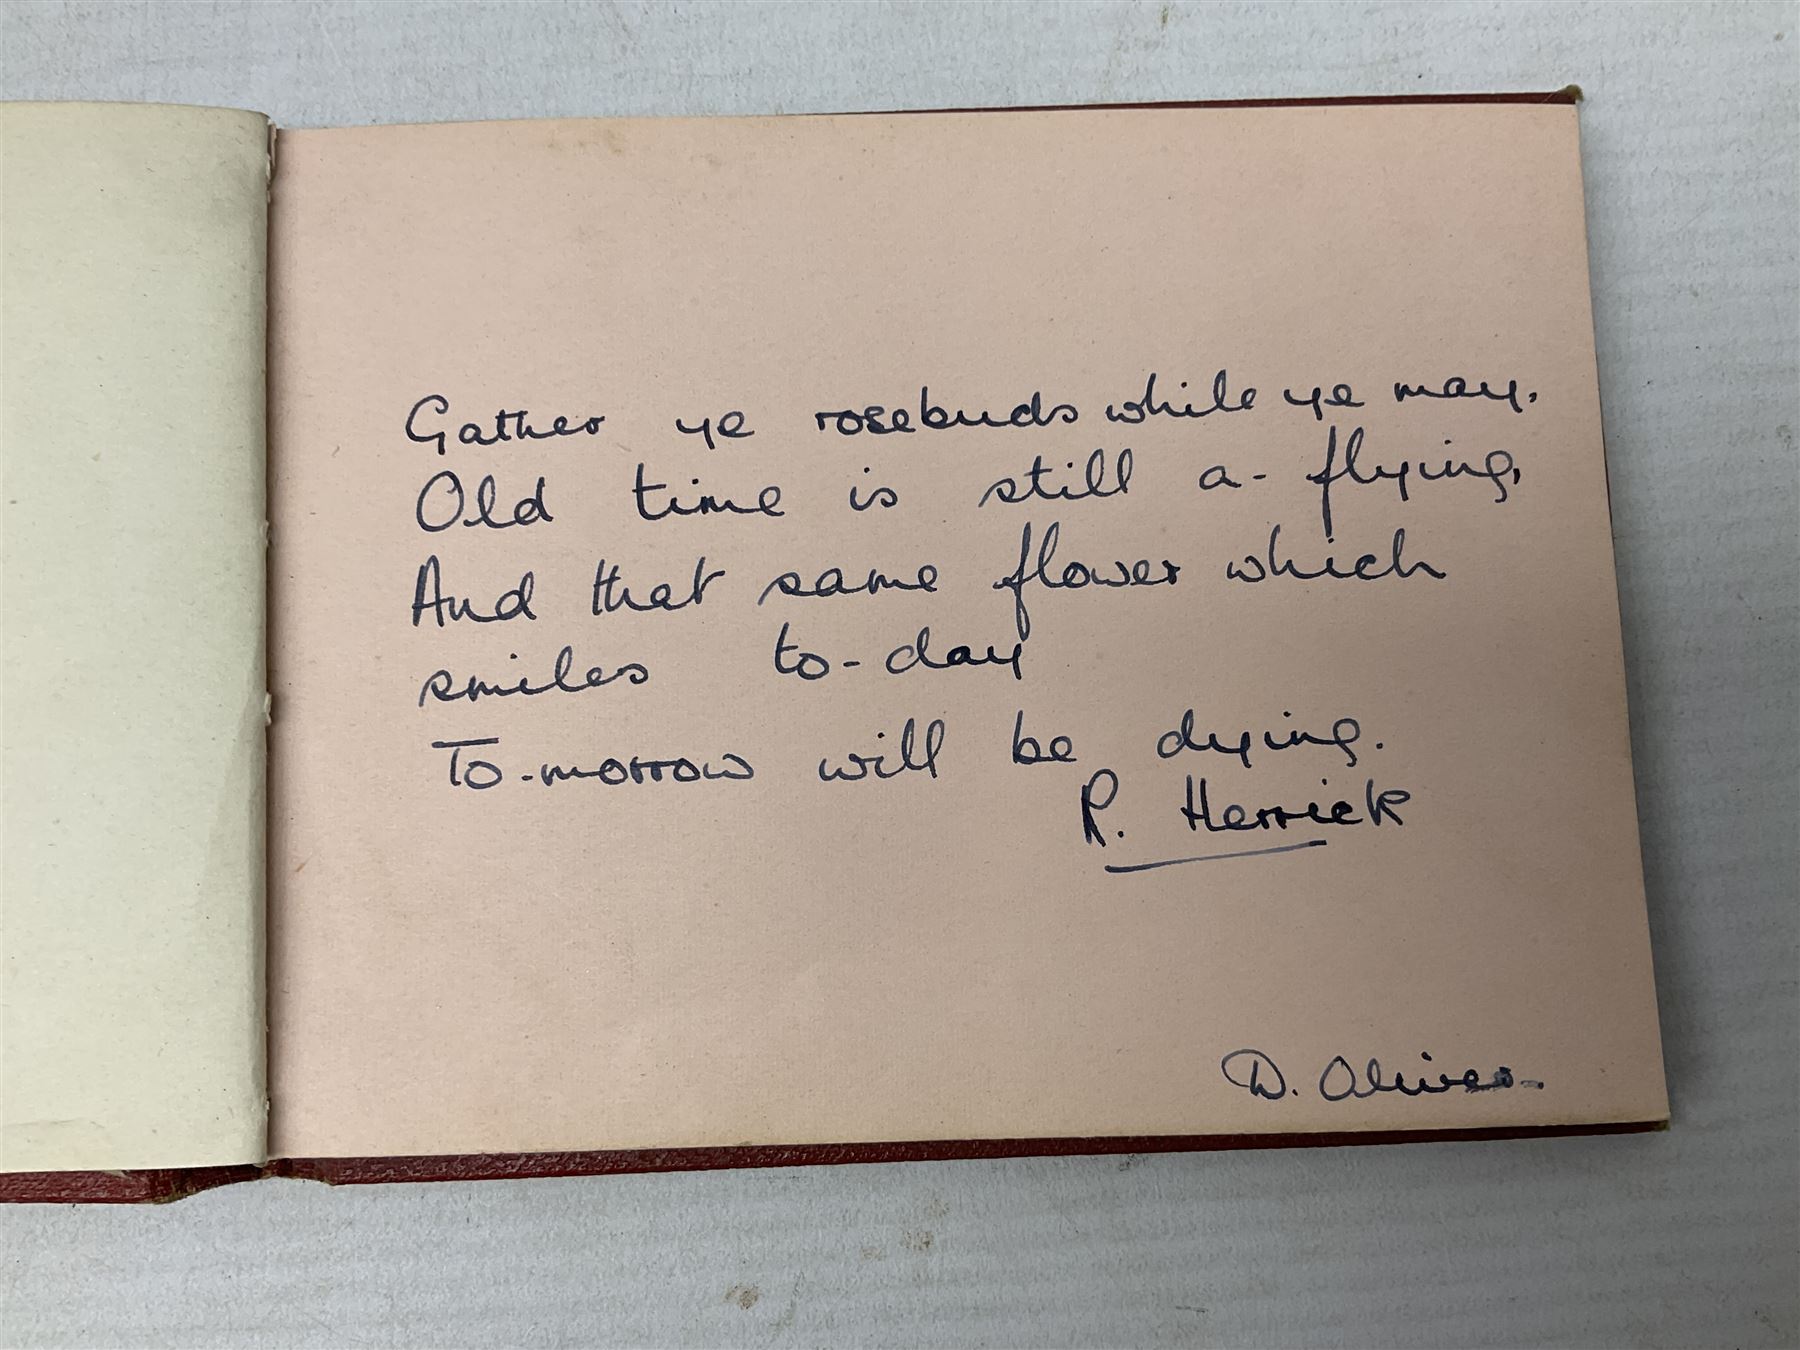 Gather ye rosebuds while ye may,
Old time is still a-flying,
And that same flower which
smiles to-day
To-morrow will be dying.
R. Herrick
D. Oliver.